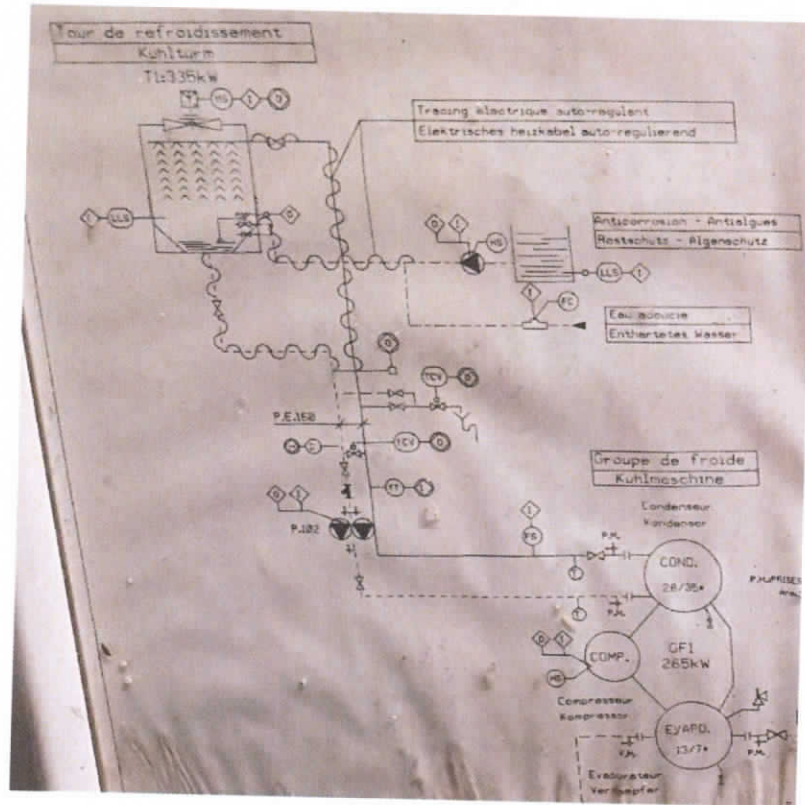 Tour de refroidissement
Kühlturm
T1:335kW
HS
I
O
Tracing électrique auto-regulent
Elektrisches heizkabel auto-regulierend
I
LLS
O
O
I
HS
Anticorrosion - Antialgues
Rostschutz - Algenschutz
LLS
I
I
FC
Eau adoucie
Enthartetes Wasser
O
TCV
O
P.E.160
TCV
O
TT
I
Groupe de froide
Kuhlmaschine
O
I
P.102
I
FS
Condenseur
Kondensor
P.M.
COND.
28/35°
T
T
P.M.
O
I
COMP.
GF1
265kW
HS
Compresseur
Kompressor
EVAPO.
13/7°
V.M.
P.M.
Evaporateur
Verdampfer